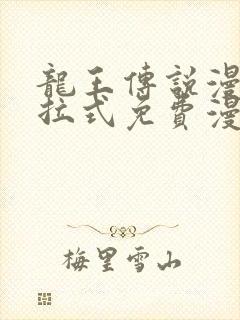 龍王傳說漫
拉式免費漫
梅里雪山